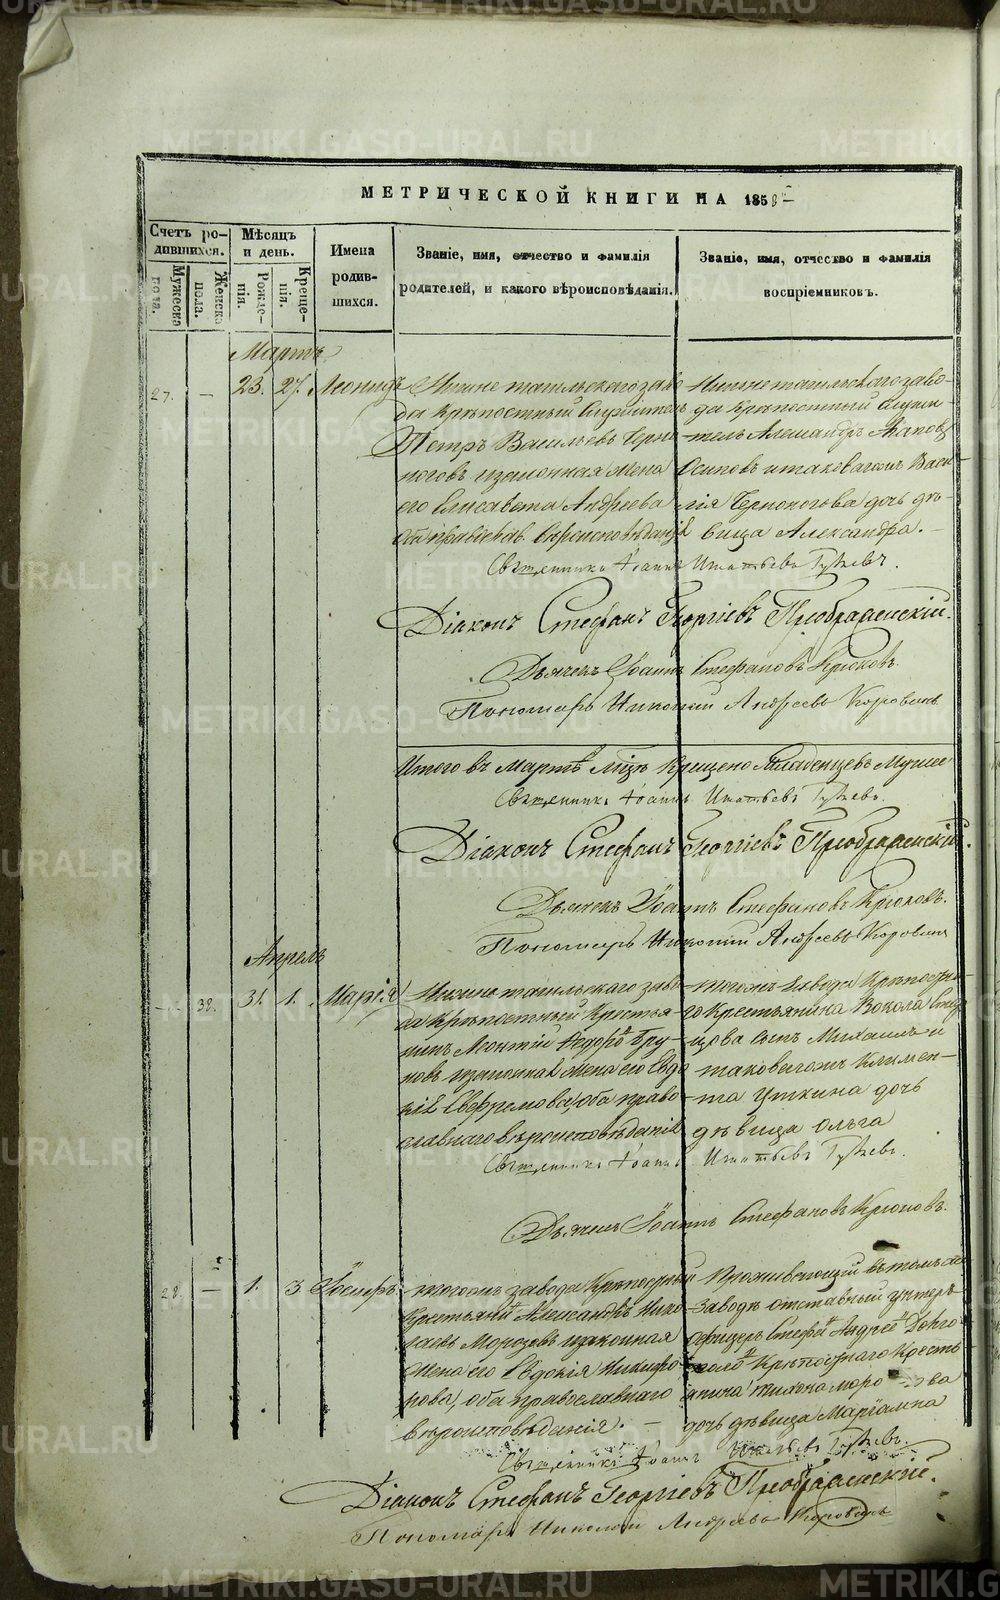 METRIKI.GASO-URAL.RU
МЕТРИЧЕСКОЙ КНИГИ НА 1858
Счетъ родившихся.
Мужеска пола.
Женска пола.
Мѣсяцъ и день.
Рожденія.
Крещенія.
Имена родившихся.
Званіе, имя, отчество и фамилія родителей, и какого вѣроисповѣданія.
Званіе, имя, отчество и фамилія воспріемниковъ.
Мартъ
27. — 23. 27. Леонидъ
Нижнетагильскаго заво-
да Крѣпостный Служитель
Петръ Васильевъ Черно-
ноговъ и законная жена
его Елисавета Андреева
оба правосл. вѣроисповѣданія
Нижнетагильскаго заво-
да Крѣпостный служи-
тель Александръ
Осиповъ и таковагожъ Васи-
лія Черноногова дочь дѣ-
вица Александра. —
Священникъ Іоаннъ Игнатьевъ
Діаконъ Стефанъ Георгіевъ Преображенскій.
Дьячекъ Іоаннъ Стефановъ Крюковъ.
Пономарь Николай Андреевъ Коровинъ
Итого въ Мартѣ Мцѣ Крещено Младенцевъ
Священникъ Іоаннъ Игнатьевъ
Діаконъ Стефанъ Георгіевъ Преображенскій.
Дьячекъ Іоаннъ Стефановъ Крюковъ.
Пономарь Николай Андреевъ Коровинъ
Апрель
— 32. 31. 1. Марія
Нижнетагильскаго заво-
да крѣпостный Крестья-
нинъ Леонтій Федоровъ
и законная жена его Евдо-
кія Ефремова, оба право-
славнаго вѣроисповѣданія
тогожъ Завода Крѣпостна-
го Крестьянина Вокола
сынъ Михаилъ и
таковагожъ Климен-
та Уткина дочь
дѣвица Ольга
Священникъ Іоаннъ Игнатьевъ
Дьячекъ Іоаннъ Стефановъ Крюковъ.
28. — 1. 3. Іосифъ
тогожъ завода Крѣпостный
Крестьянинъ Александръ Нико-
лаевъ Морозовъ и законная
жена его Евдокія Никифо-
рова, оба православнаго
вѣроисповѣданія. —
Проживающій въ томъ же
Заводѣ отставный унтеръ
офицеръ Стефанъ Андреевъ
Крѣпостнаго Кресть-
янина Тихона
дочь дѣвица Маріамна
Священникъ Іоаннъ Игнатьевъ
Діаконъ Стефанъ Георгіевъ Преображенскій.
Пономарь Николай Андреевъ Коровинъ